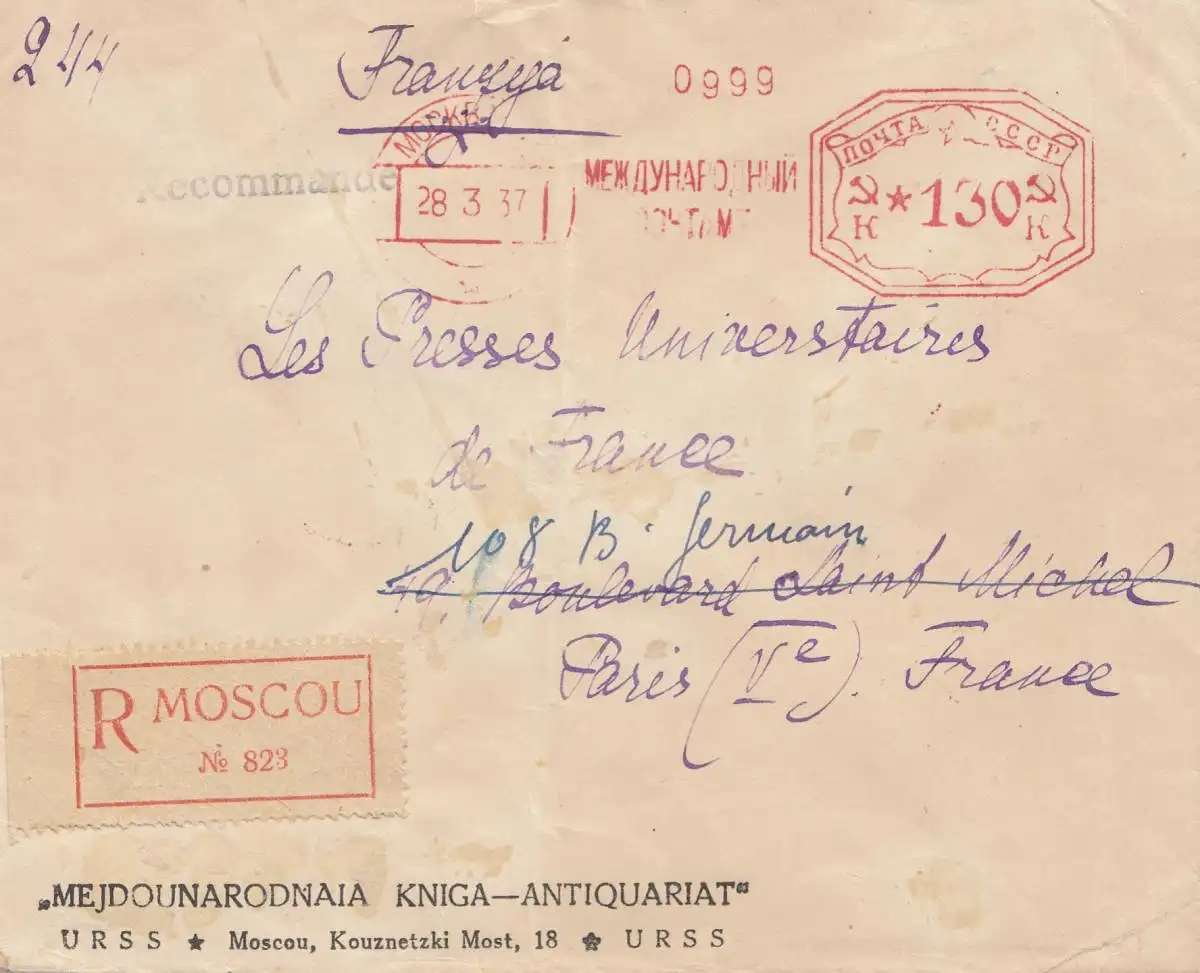 244
Franzyá
0999
МОСКВА
ПОЧТА СССР
Recommandé
28 3 37
МЕЖДУНАРОДНЫЙ
ПОЧТАМТ
★ 130
К К
Les Presses Universtaires
de France
108 B. Germain
19, Boulevard Saint Michel
Paris (Ve). France
R MOSCOU
№ 823
„MEJDOUNARODNAIA KNIGA—ANTIQUARIAT“
URSS ★ Moscou, Kouznetzki Most, 18 ★ URSS